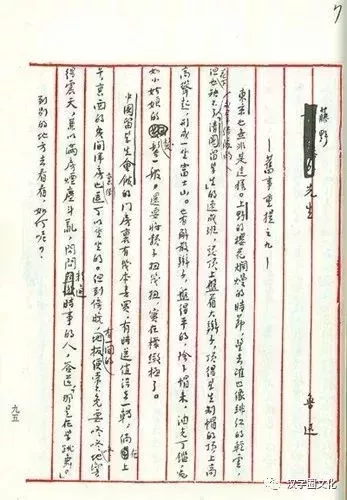 7
藤野先生
—舊事重提之九—
魯迅
東京也無非是這樣。上野的櫻花爛熳的時節,望去確也像緋紅的輕雲,
但花下也缺不了成群結隊的「清國留學生」的速成班,頭頂上盤着大辮子,頂得學生制帽的頂上高
高聳起,形成一座富士山。也有解散辮子,盤得平的,除下帽來,油光可鑑,宛
如小姑娘的髮髻一般,還要將脖子扭幾扭。實在標緻極了。
中國留學生會館的門房裏有幾本書買,有時還值得去一轉,倘在上
午,裏面的幾間洋房裏倒也還可以坐坐的。但到傍晚,有一間的地板便常不免要咚咚咚地響
得震天,兼以滿房煙塵斗亂,問問精通時事的人,答道,「那是在學跳舞。」
到別的地方去看看,如何呢?
九五
汉字圈文化